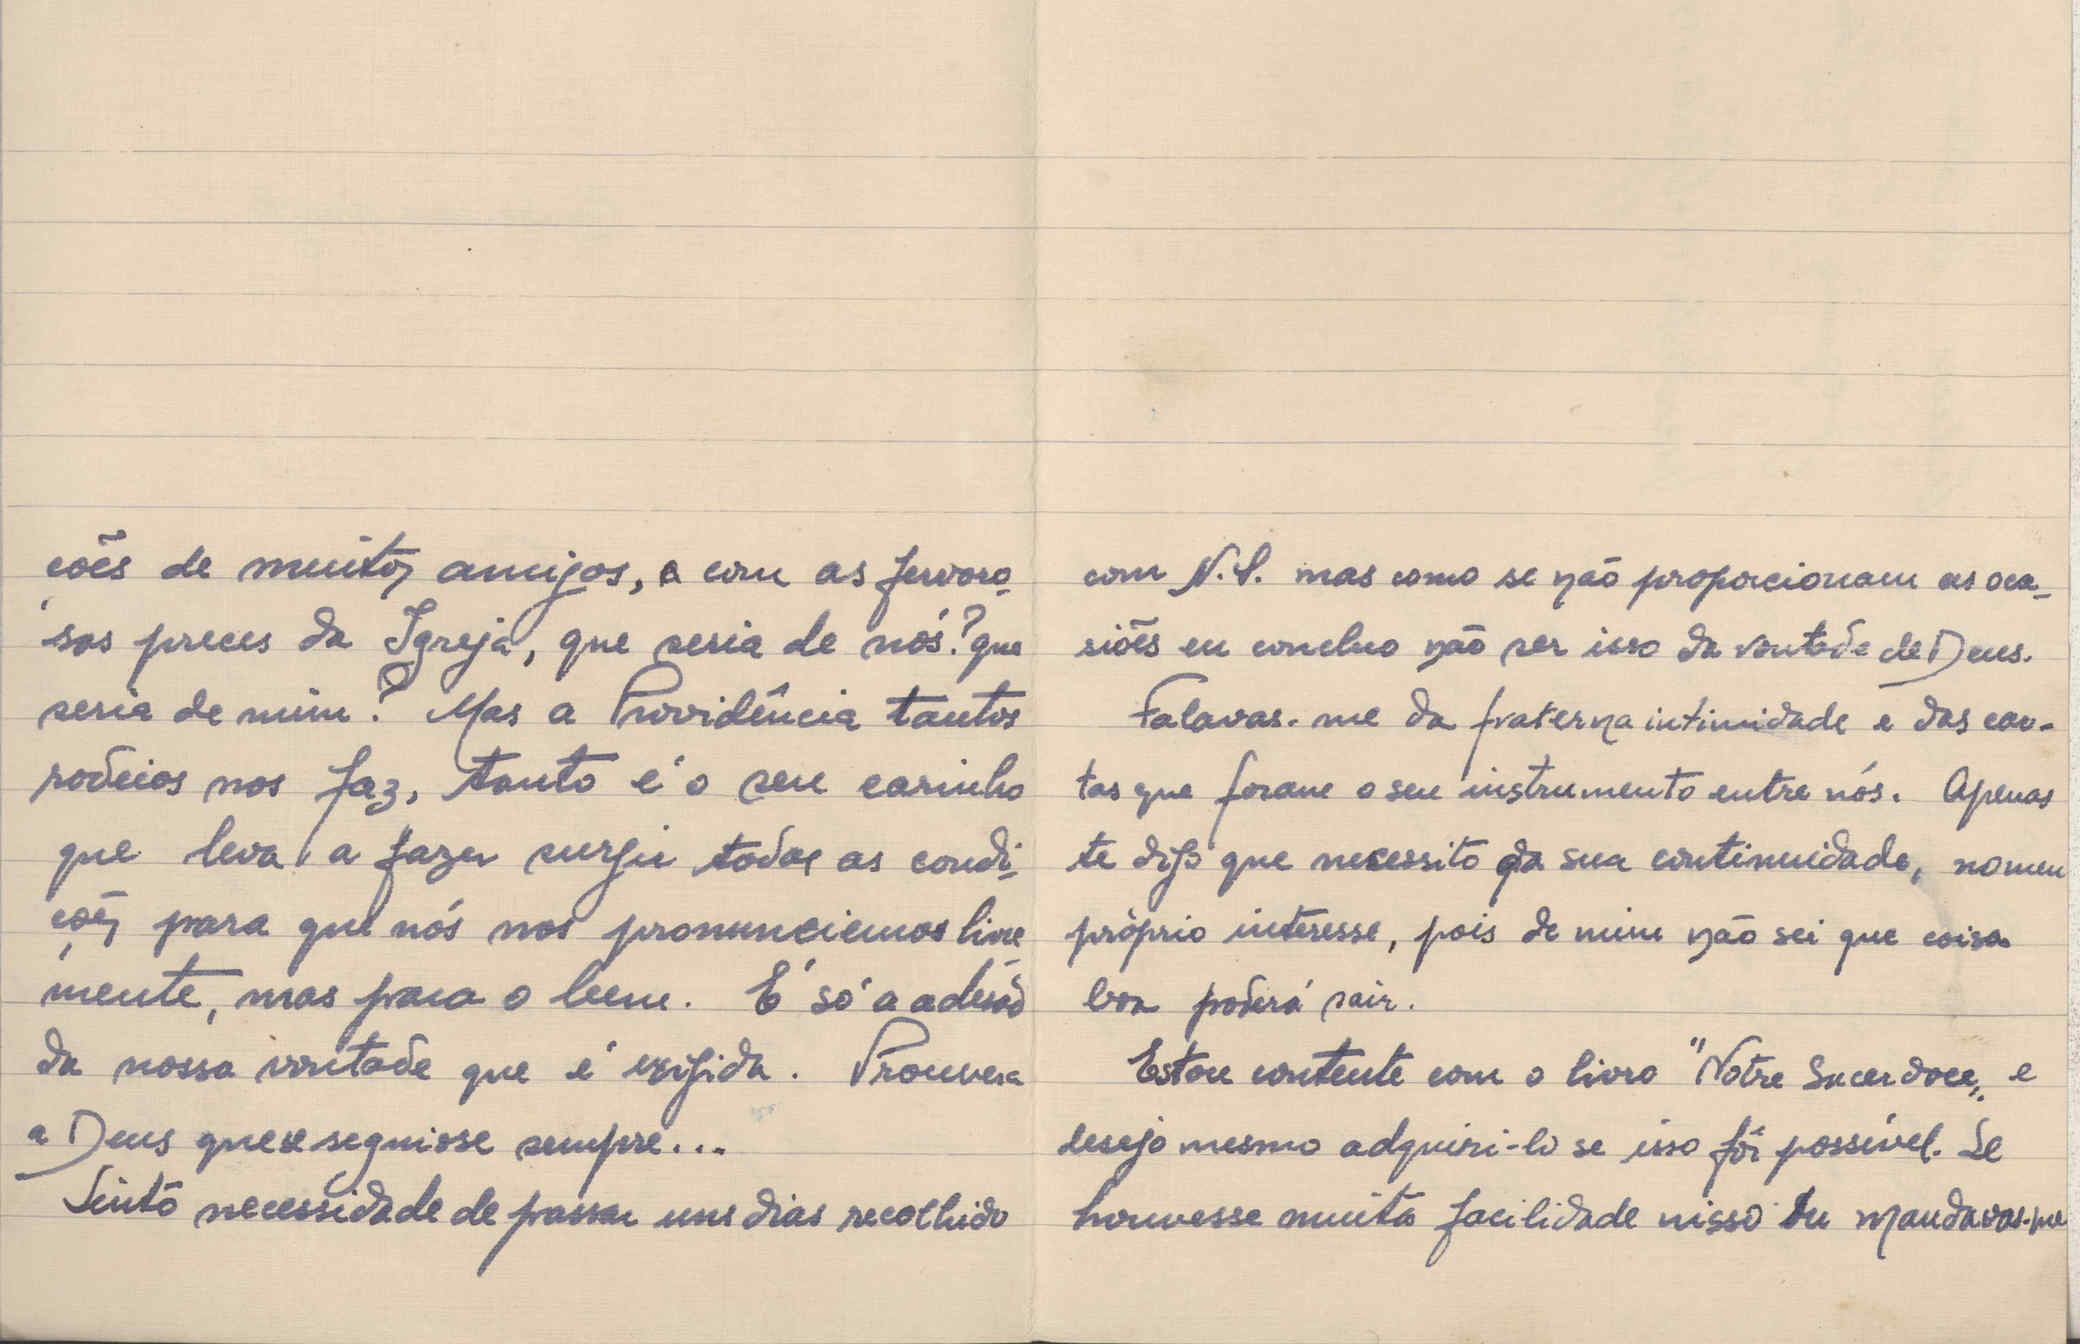 ções de muitos amigos, e com as fervoro-
sas preces da Igreja, que seria de nós? que
seria de mim? Mas a Providência tantos
rodeios nos faz, tanto é o seu carinho
que leva a fazer surgir todas as condi-
ções para que nós nos pronunciemos livre
mente, mas para o bem. É só a adesão
da nossa vontade que é exigida. Prouvera
a Deus que se seguisse sempre...
Sinto necessidade de passar uns dias recolhido
com N.S. mas como se não proporcionam as oca-
siões eu concluo não ser isso da vontade de Deus.
Falavas-me da fraterna intimidade e das car-
tas que foram o seu instrumento entre nós. Apenas
te digo que necessito da sua continuidade, no meu
próprio interesse, pois de mim não sei que coisa
boa poderá sair.
Estou contente com o livro "Notre Sacerdoce" e
desejo mesmo adquiri-lo se isso fôr possível. Se
houvesse muita facilidade nisso tu mandavas-me